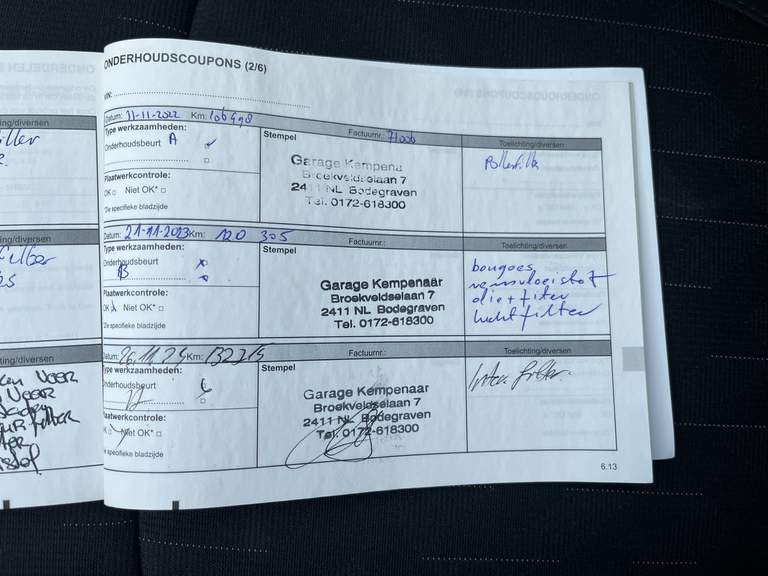 ting/diversen
ting/diversen
ting/diversen
ONDERHOUDSCOUPONS (2/6)
VIN:
Datum: 11-11-2022 Km: 106498
Type werkzaamheden:
Onderhoudsbeurt A
Plaatwerkcontrole:
OK □ Niet OK* □
*Zie specifieke bladzijde
Stempel Factuurnr.: 71006
Garage Kempena
Broekveldselaan 7
2411 NL Bodegraven
Tel. 0172-618300
Toelichting/diversen
Pollenfilter
Datum: 21-11-2023 Km: 120 305
Type werkzaamheden:
Onderhoudsbeurt
B
Plaatwerkcontrole:
OK Niet OK* □
*Zie specifieke bladzijde
Stempel Factuurnr.:
Garage Kempenaar
Broekveldselaan 7
2411 NL Bodegraven
Tel. 0172-618300
Toelichting/diversen
bougies
remvloeistof
olie + filter
luchtfilter
Datum: 26 11 24 Km: 132215
Type werkzaamheden:
Onderhoudsbeurt
Plaatwerkcontrole:
OK Niet OK* □
*Zie specifieke bladzijde
Stempel Factuurnr.:
Garage Kempenaar
Broekveldselaan 7
2411 NL Bodegraven
Tel. 0172-618300
Toelichting/diversen
Inter. filter.
6.13